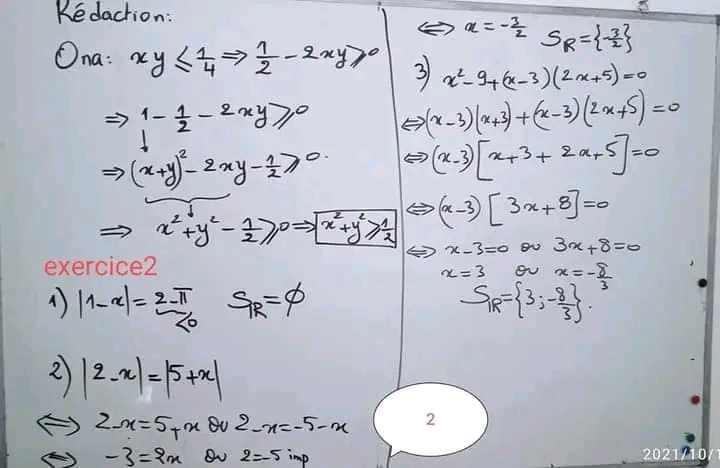 Rédaction:
On a: xy ≤ 1/4 ⇒ 1/2 - 2xy ≥ 0
⇒ 1 - 1/2 - 2xy ≥ 0
⇒ (x+y)² - 2xy - 1/2 ≥ 0.
⇒ x² + y² - 1/2 ≥ 0 ⇒ x² + y² ≥ 1/2
exercice2
1) |1-x| = 2-π S_IR = ∅
<0
2) |2-x| = |5+x|
⇔ 2-x = 5+x ou 2-x = -5-x
⇔ -3 = 2x ou 2 = -5 imp
⇔ x = -3/2 S_IR = {-3/2}
3) x² - 9 + (x-3)(2x+5) = 0
⇔ (x-3)(x+3) + (x-3)(2x+5) = 0
⇔ (x-3)[x+3+2x+5] = 0
⇔ (x-3)[3x+8] = 0
⇔ x-3=0 ou 3x+8=0
x=3 ou x=-8/3
S_IR = {3; -8/3}.
2
2021/10/1